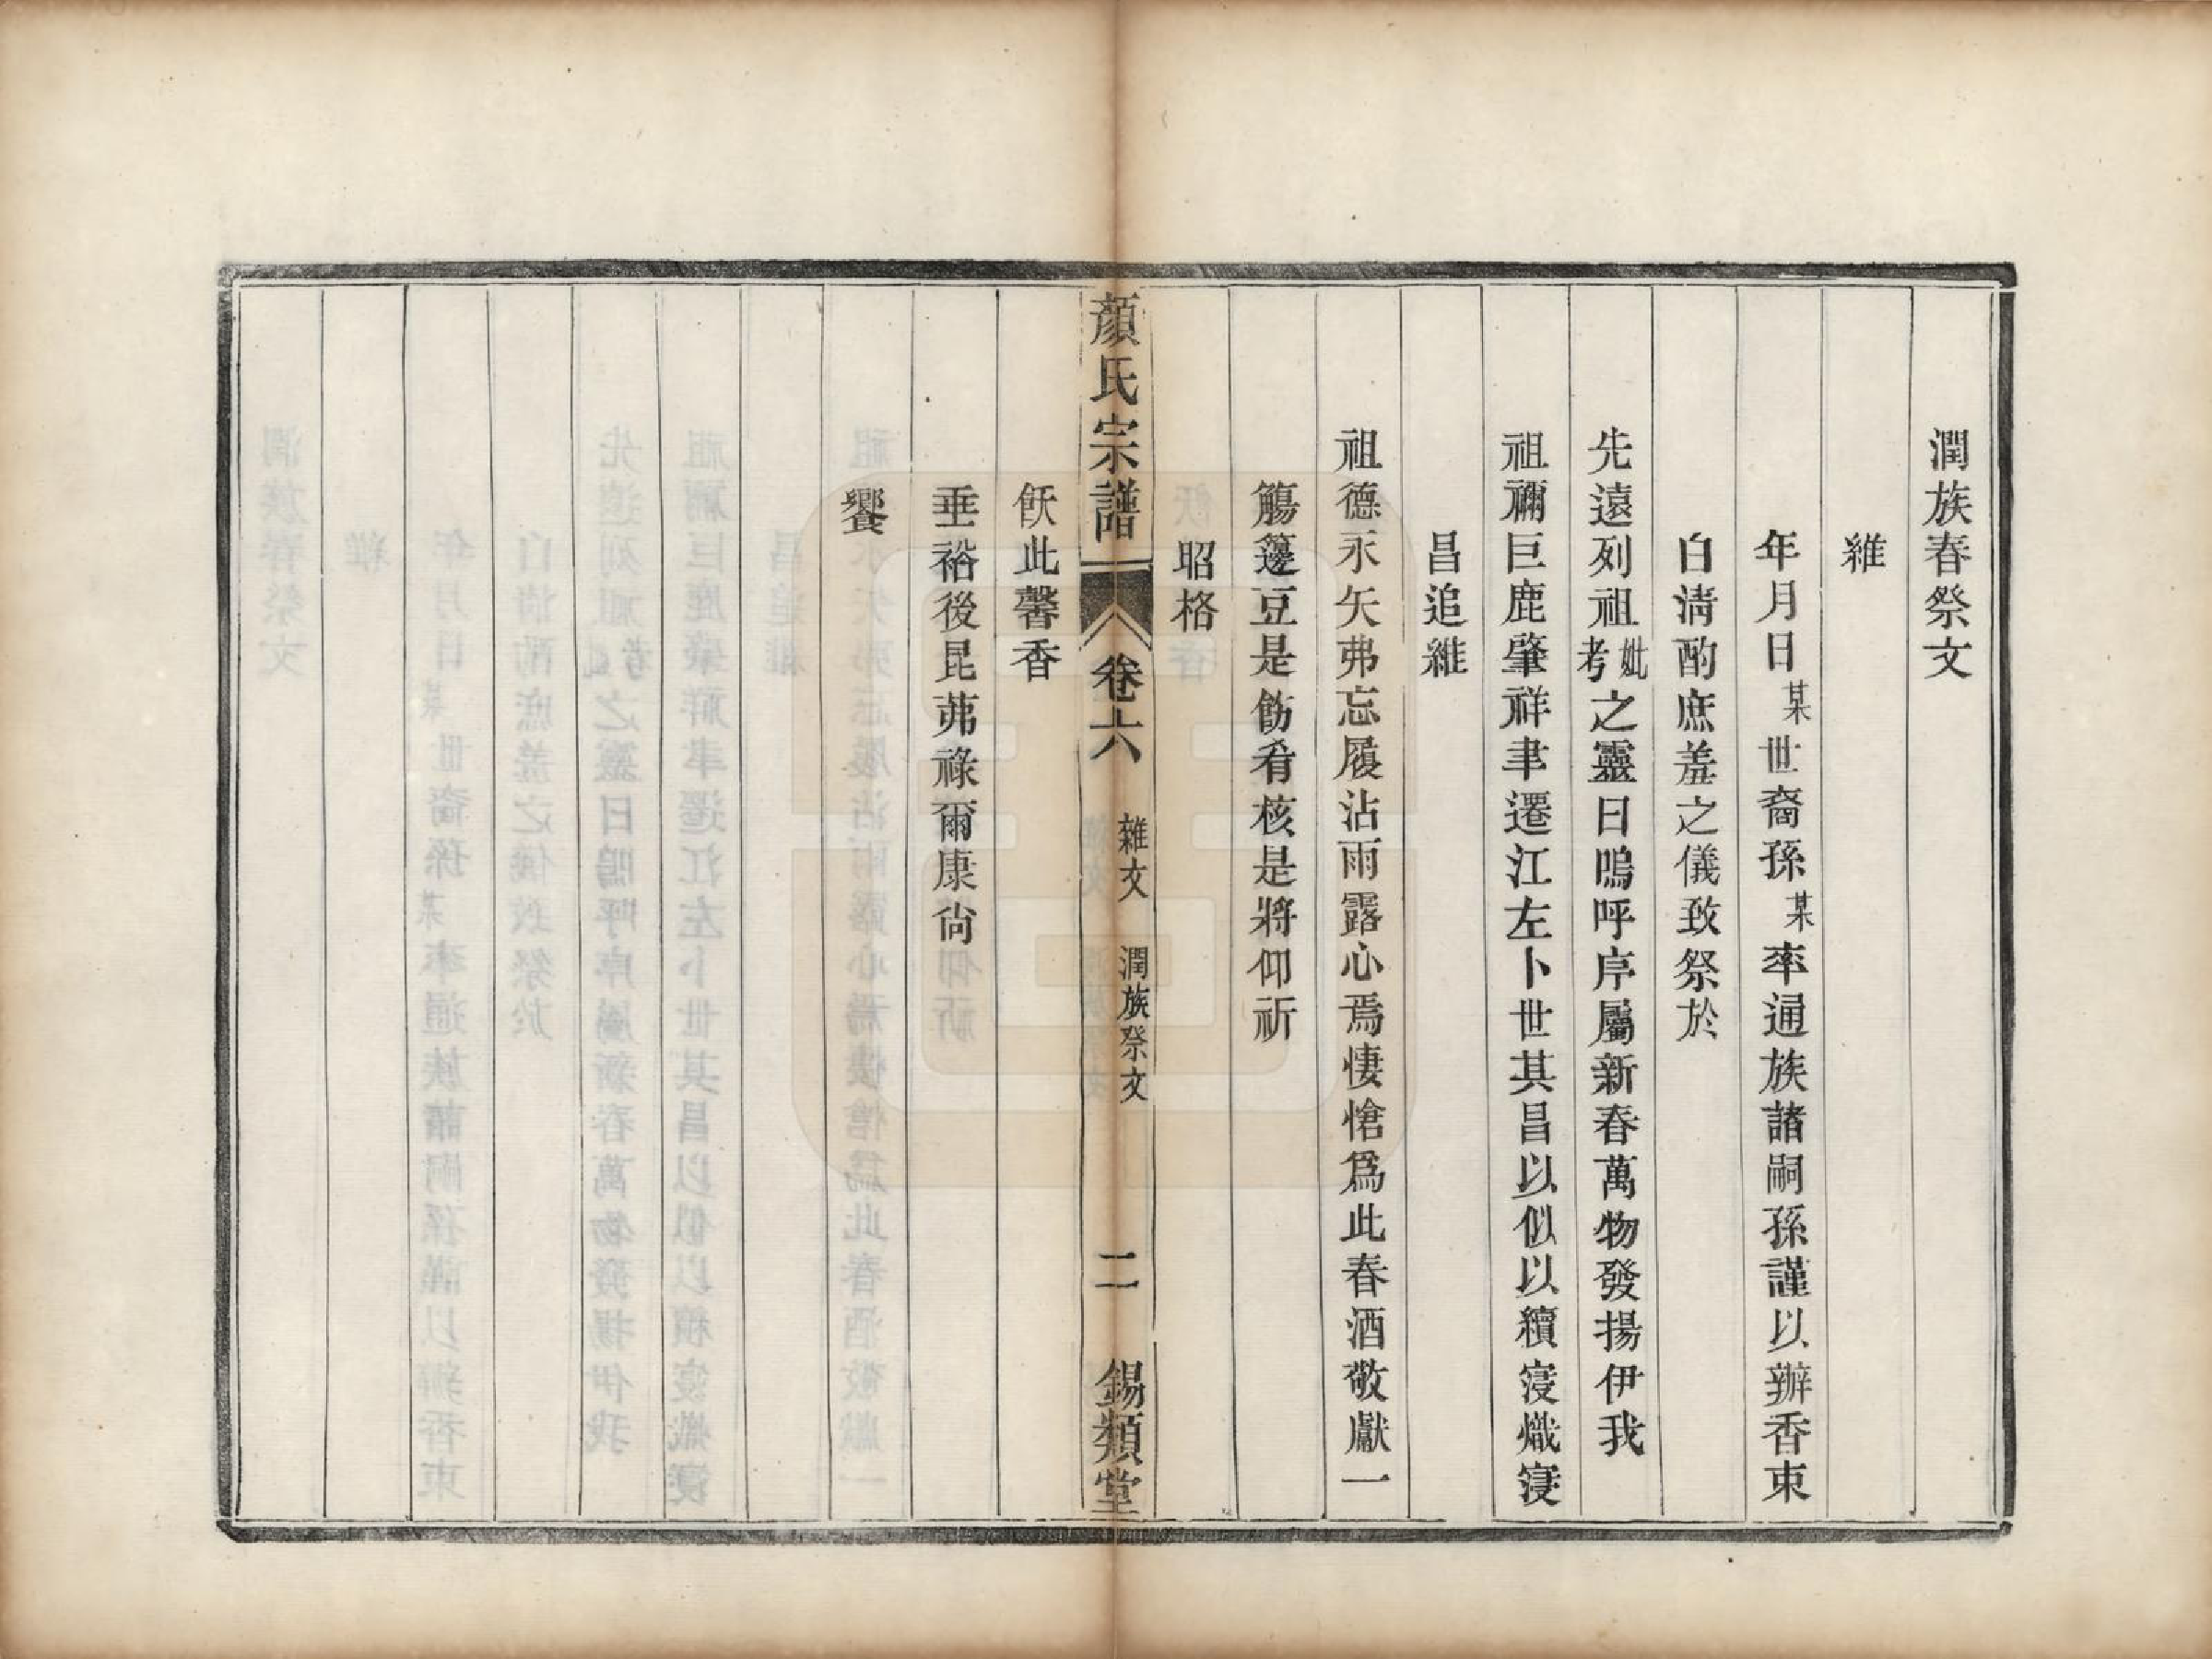 潤族春祭文
維
年月日某世裔孫某率通族諸嗣孫謹以辦香束
白清酌庶羞之儀致祭於
先遠列祖妣考之靈曰嗚呼序屬新春萬物發揚伊我
祖禰巨鹿肇祥聿遷江左卜世其昌以似以續寖熾寖
昌追維
祖德永矢弗忘履沾雨露心焉悽愴爲此春酒敬獻一
觴籩豆是飭肴核是將仰祈
昭格
顏氏宗譜 卷六 雜文 潤族祭文 二 錫類堂
飫此馨香
垂裕後昆茀祿爾康尙
饗